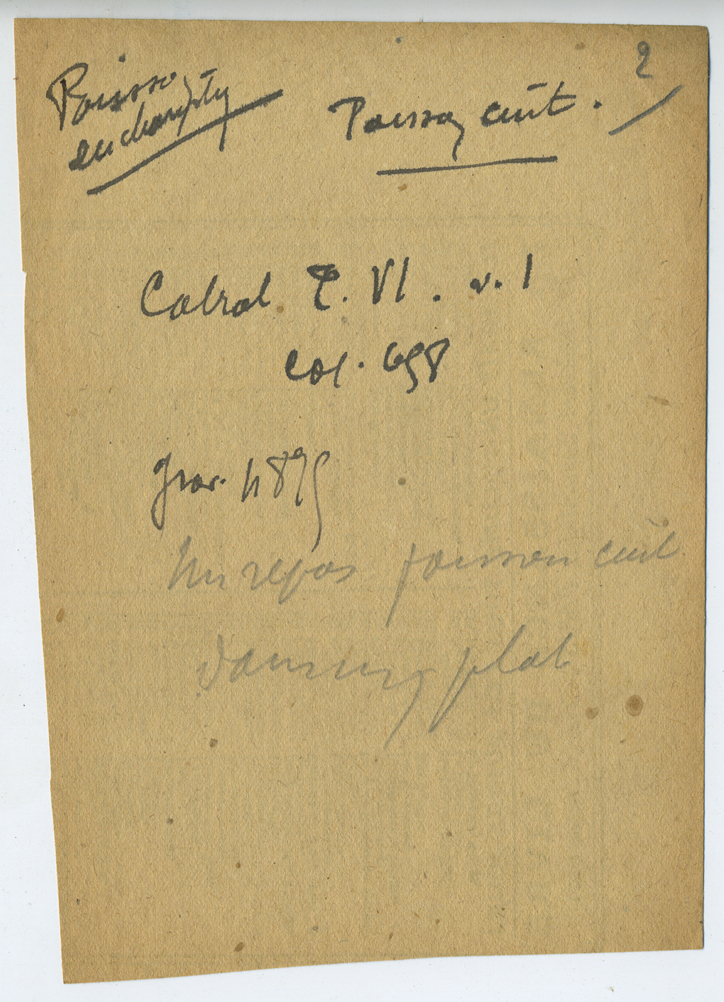 2
Poisson
eucharistiq
Poisson cuit.
Cabrol T. VI. v. 1
col. 698
grav. 4895
Un repas poisson cuit
dans un plat